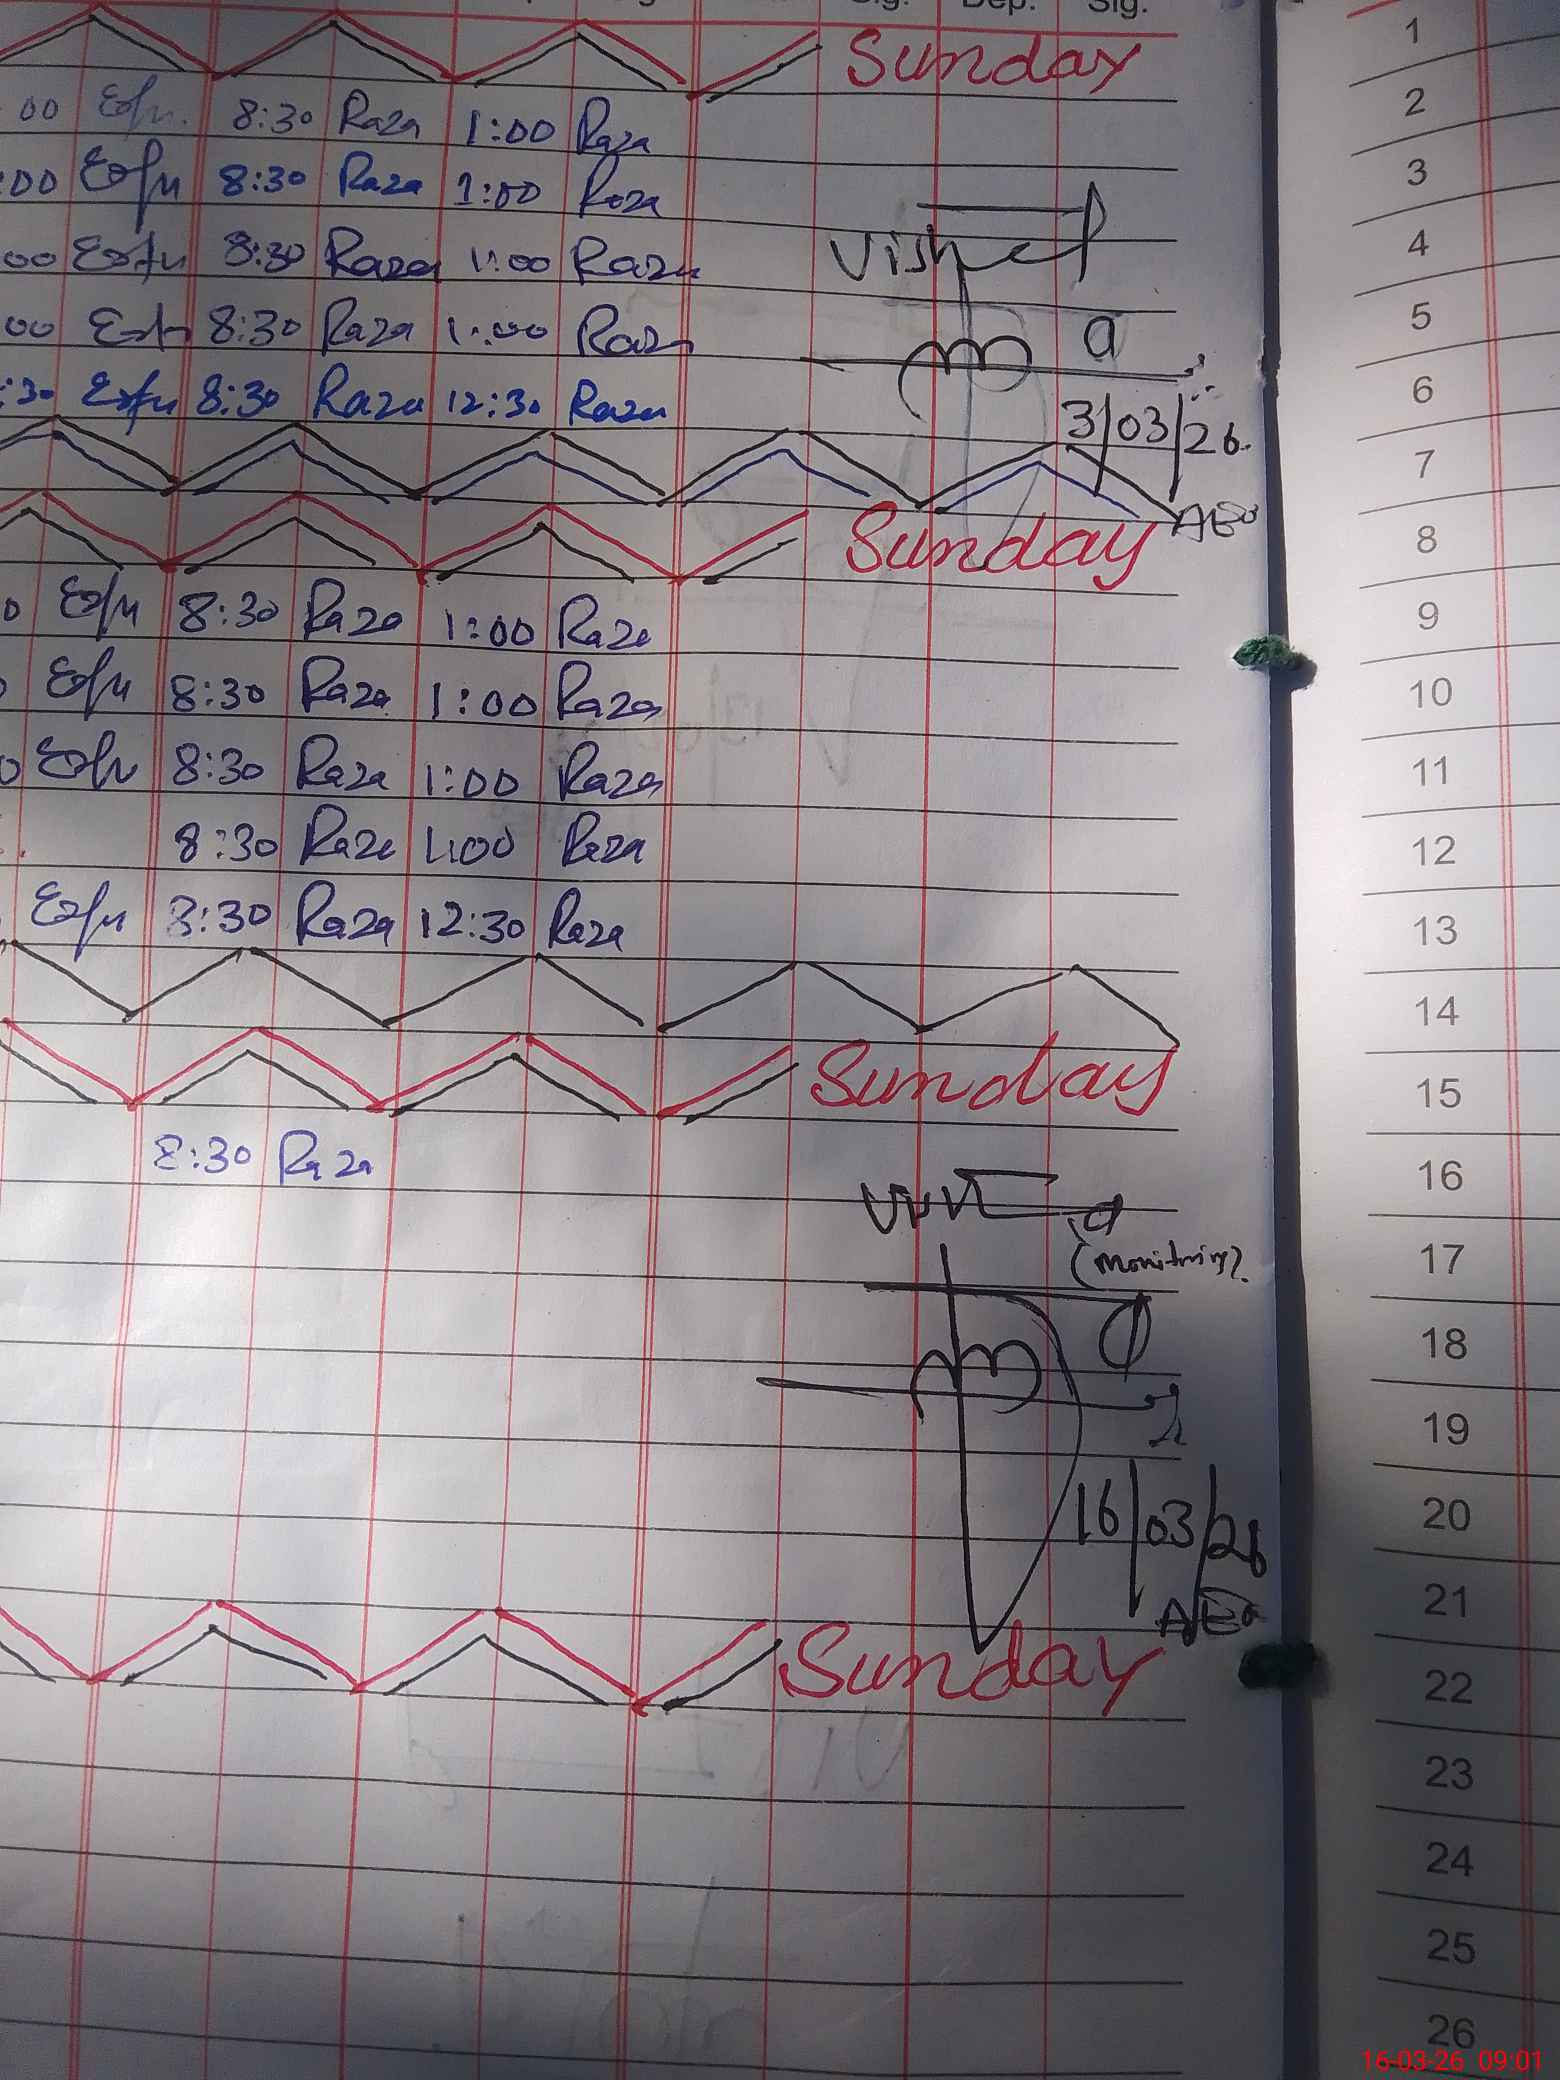 Sig. Dep. Sig.
Sunday
00 8:30 Raza 1:00 Raza
:00 8:30 Raza 1:00 Raza
00 8:30 Raza 1:00 Raza
00 8:30 Raza 1:00 Raza
:30 8:30 Raza 12:30 Raza
3/03/26
AEO
Sunday
0 8:30 Raza 1:00 Raza
8:30 Raza 1:00 Raza
0 8:30 Raza 1:00 Raza
8:30 Raza 1:00 Raza
8:30 Raza 12:30 Raza
Sunday
8:30 Raza
(monitoring)
16/03/26
AEO
Sunday
1
2
3
4
5
6
7
8
9
10
11
12
13
14
15
16
17
18
19
20
21
22
23
24
25
26
16-03-26 09:01